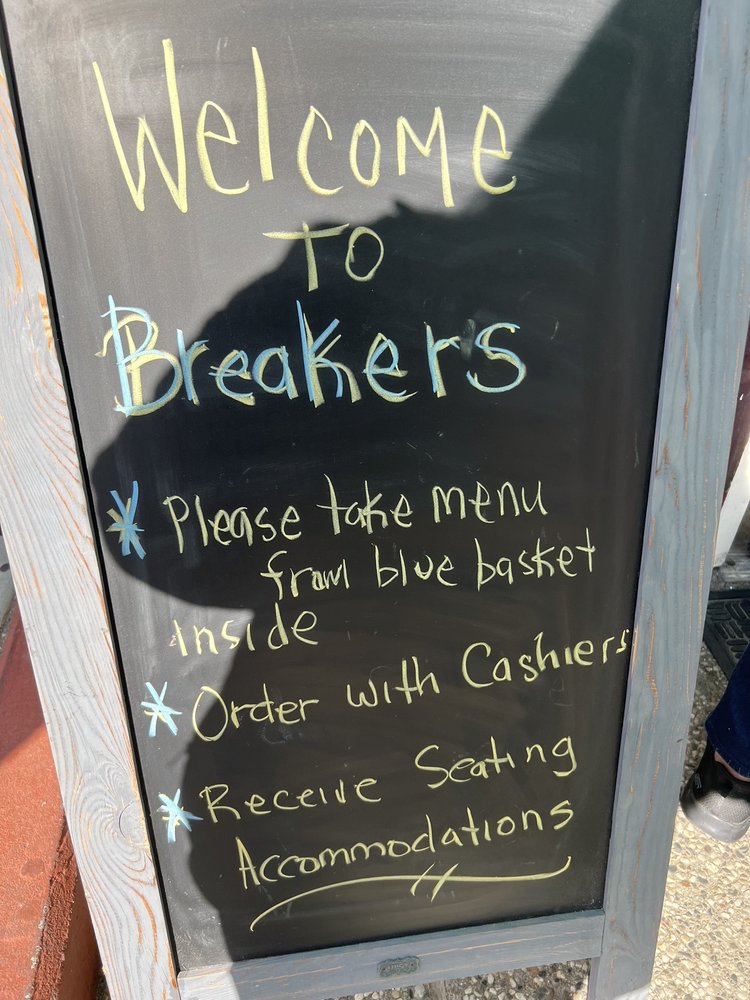 Welcome
To
Breakers
* Please take menu
from blue basket
inside
* Order with Cashiers
* Receive Seating
Accommodations